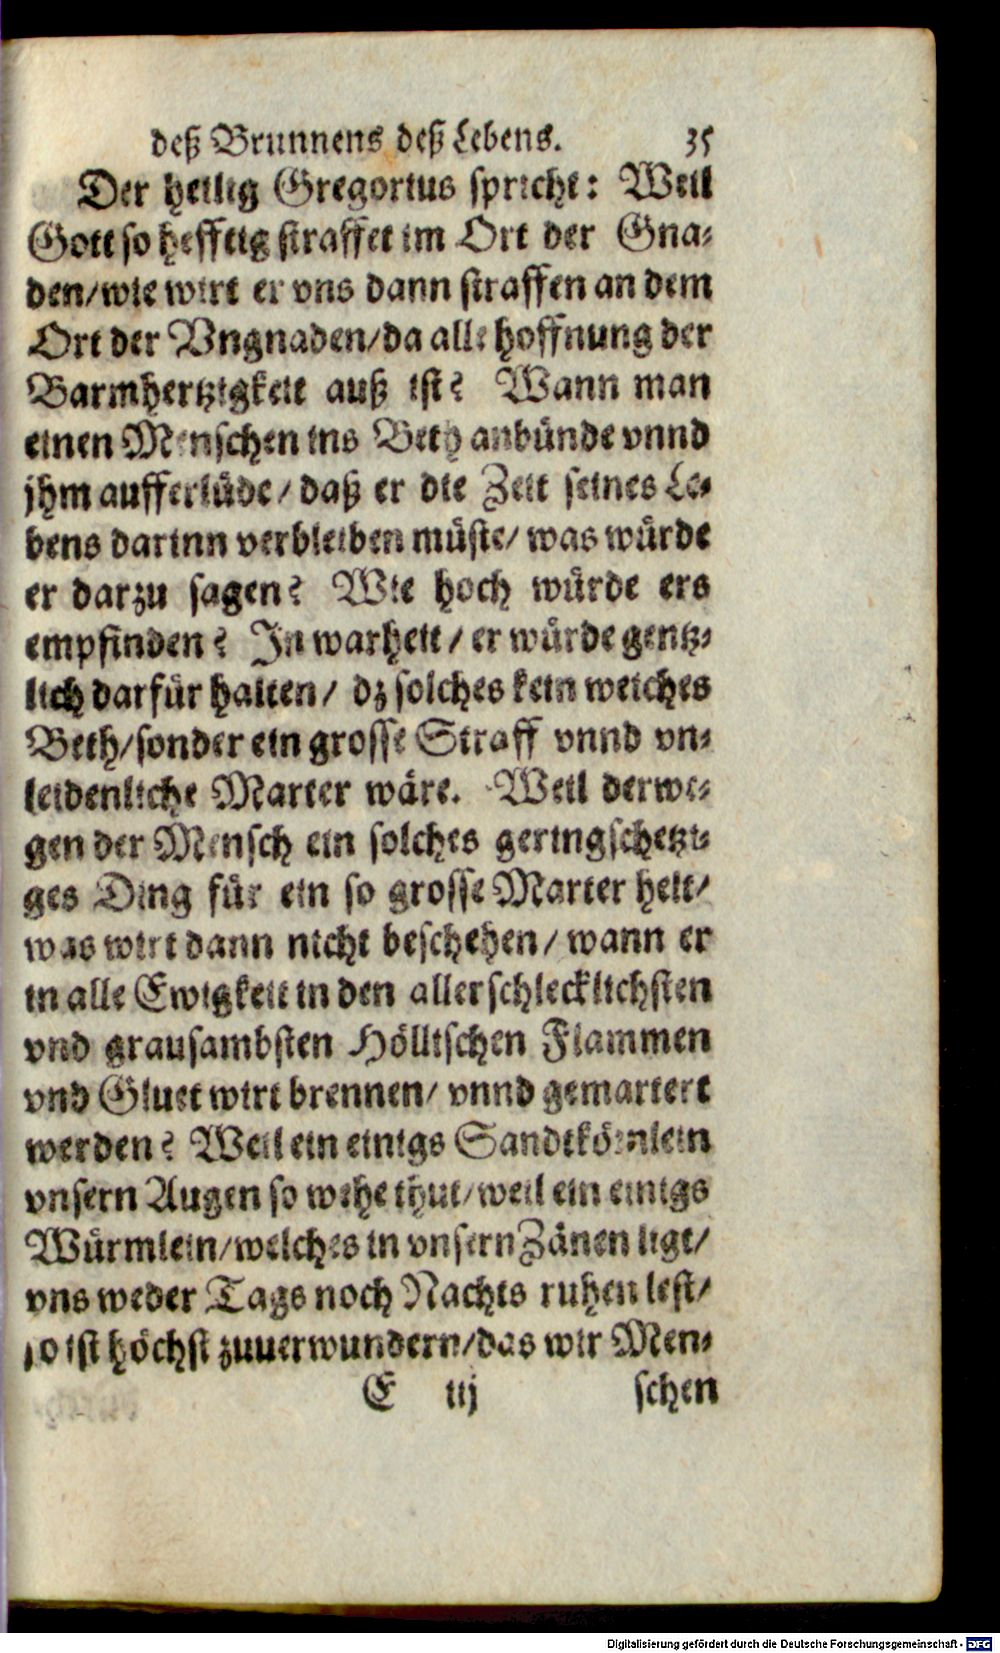 deß Brunnens deß Lebens. 35
Der heilig Gregorius spricht: Weil
Gott so hefftig straffet im Ort der Gna-
den/wie wirt er vns dann straffen an dem
Ort der Vngnaden/da alle hoffnung der
Barmhertzigkeit auß ist? Wann man
einen Menschen ins Beth anbünde vnnd
jhm aufferlüde/ daß er die Zeit seines Le-
bens darinn verbleiben müste/ was würde
er darzu sagen? Wie hoch würde ers
empfinden? In warheit/ er würde gentz-
lich darfür halten/ dz solches kein weiches
Beth/sonder ein grosse Straff vnnd vn-
leidenliche Marter wäre. Weil derwe-
gen der Mensch ein solches geringschetzi-
ges Ding für ein so grosse Marter helt/
was wirt dann nicht beschehen/ wann er
in alle Ewigkeit in den allerschlecklichsten
vnd grausambsten Höllischen Flammen
vnd Gluet wirt brennen/ vnnd gemartert
werden? Weil ein einigs Sandtkörnlein
vnsern Augen so wehe thut/weil ein einigs
Würmlein/welches in vnsern Zänen ligt/
vns weder Tags noch Nachts ruhen lest/
so ist höchst zuuerwundern/das wir Men-
E iij schen
Digitalisierung gefördert durch die Deutsche Forschungsgemeinschaft - DFG